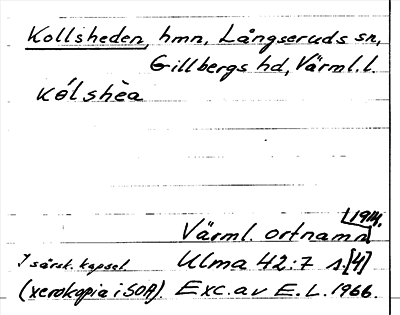 Kollsheden, hmn, Långseruds sn,
Gillbergs hd, Värml. l.
kó́lshèa
[1914.
Värml. ortnamn
I särsk. kapsel. Ulma 42:7 s.[4]
(xerokopia i SOA). Exc. av E. L. 1966.